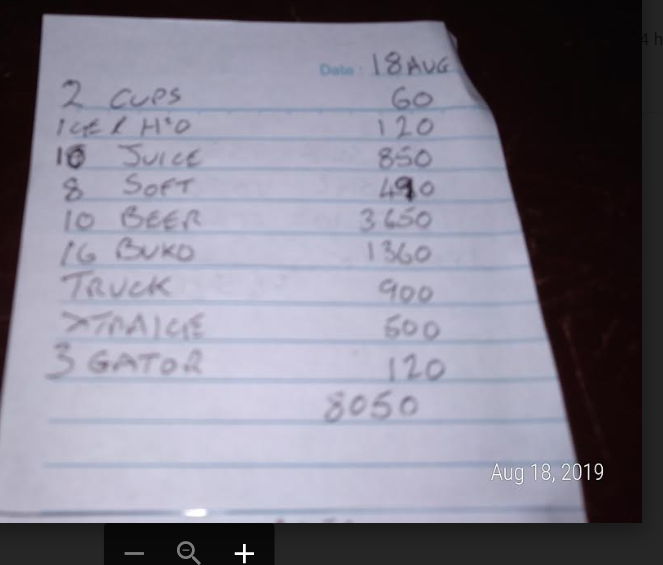 Date: 18 AUG
2 CUPS 60
ICE & H²O 120
10 JUICE 850
8 SOFT 490
10 BEER 3650
16 BUKO 1360
TRUCK 900
XTRAICE 500
3 GATOR 120
8050
Aug 18, 2019